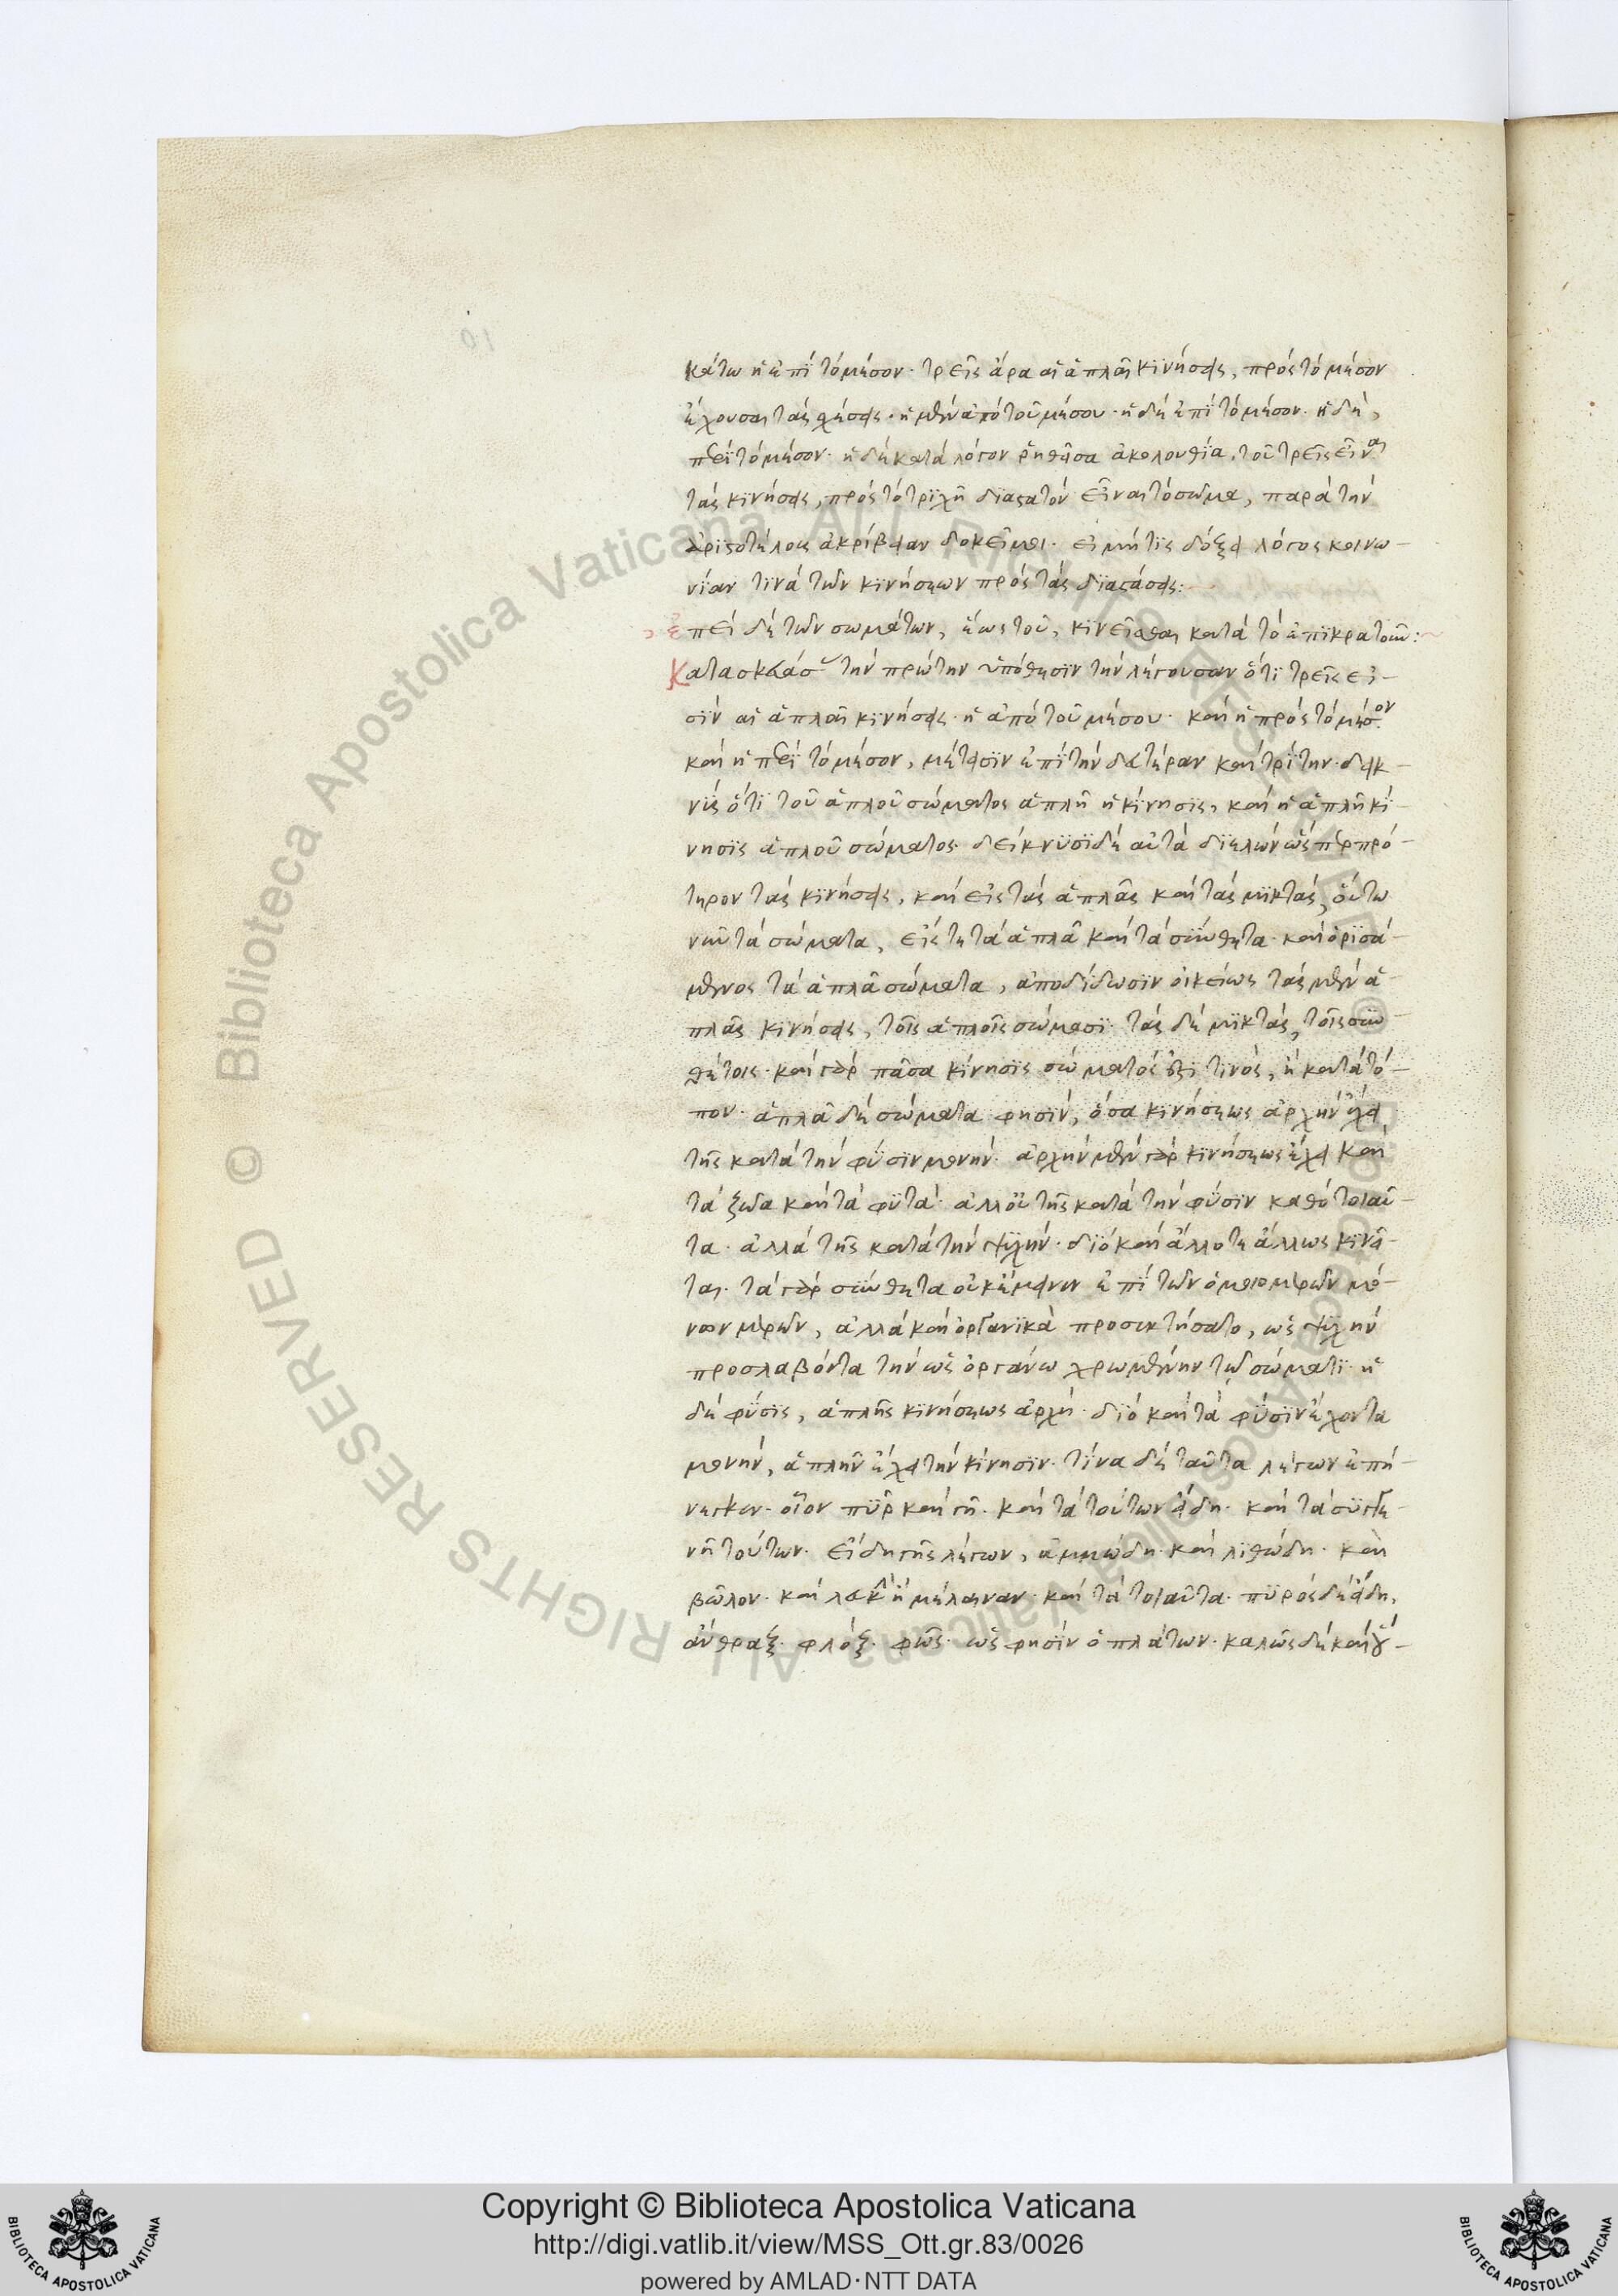 κάτω ἡ ἐπὶ τὸ μέσον· τρεῖς ἄρα αἱ ἁπλαῖ κινήσεις, πρὸς τὸ μέσον
ἔχουσαι τὰς σχέσεις· ἡ μὲν ἀπὸ τοῦ μέσου· ἡ δὲ ἐπὶ τὸ μέσον· ἡ δὲ,
περὶ τὸ μέσον· ἡ δὲ κατὰ λόγον ῥηθεῖσα ἀκολουθία, τοῦ τρεῖς εἶναι
τὰς κινήσεις, πρὸς τὸ τριχῆ διαστατὸν εἶναι τὸ σῶμα, παρὰ τὴν
ἀριστοτέλους ἀκρίβειαν δοκεῖ μοι· εἰ μή τις δόξει λόγος κοινω-
νίαν τινὰ τῶν κινήσεων πρὸς τὰς διαστάσεις:
ἐπεὶ δὲ τῶν σωμάτων, ἕως τοῦ, κινεῖσθαι κατὰ τὸ ἐπικρατοῦν:
Κατασκευάσας τὴν πρώτην ὑπόθεσιν τὴν λέγουσαν ὅτι τρεῖς εἰ-
σὶν αἱ ἁπλαῖ κινήσεις· ἡ ἀπὸ τοῦ μέσου· καὶ ἡ πρὸς τὸ μέσον
καὶ ἡ περὶ τὸ μέσον, μέτεισιν ἐπὶ τὴν δευτέραν καὶ τρίτην· δεικ-
νὺς ὅτι τοῦ ἁπλοῦ σώματος ἁπλῆ ἡ κίνησις, καὶ ἡ ἁπλῆ κί-
νησις ἁπλοῦ σώματος· δείκνυσι δὲ αὐτὰ διελὼν ὥσπερ πρό-
τερον τὰς κινήσεις, καὶ εἰς τὰς ἁπλᾶς καὶ τὰς μικτάς, οὕτω
νῦν τὰ σώματα, εἴς τε τὰ ἁπλᾶ καὶ τὰ σύνθετα· καὶ ὁρισά-
μενος τὰ ἁπλᾶ σώματα, ἀποδίδωσιν οἰκείως τὰς μὲν ἁ-
πλᾶς κινήσεις, τοῖς ἁπλοῖς σώμασι· τὰς δὲ μικτάς, τοῖς συν-
θέτοις· καὶ γὰρ πᾶσα κίνησις σώματός ἐστί τινος, ἡ κατὰ τό-
πον· ἁπλᾶ δὲ σώματα φησὶν, ὅσα κινήσεως ἀρχὴν ἔχει
τῆς κατὰ τὴν φύσιν μόνην· ἀρχὴν μὲν γὰρ κινήσεως ἔχει καὶ
τὰ ζῶα καὶ τὰ φυτά· ἀλλ' οὐ τῆς κατὰ τὴν φύσιν καθὸ τοιαῦ-
τα· ἀλλὰ τῆς κατὰ τὴν ψυχήν· διὸ καὶ ἄλλοτε ἄλλως κινεῖ-
ται· τὰ γὰρ σύνθετα οὐκ ἔμεινεν ἐπὶ τῶν ὁμοιομερῶν μό-
νον μερῶν, ἀλλὰ καὶ ὀργανικὰ προσεκτήσατο, ὡς ψυχὴν
προσλαβόντα τὴν ὡς ὀργάνω χρωμένην τῶ σώματι· ἡ
δὲ φύσις, ἁπλῆς κινήσεως ἀρχή· διὸ καὶ τὰ φύσιν ἔχοντα
μόνην, ἁπλῆν ἔχει τὴν κίνησιν· τίνα δὲ ταῦτα λέγων ἐπή-
νεγκεν· οἷον πῦρ καὶ γῆ· καὶ τὰ τούτων εἴδη· καὶ τὰ συγγε-
νῆ τούτων· εἴδη γῆς λέγων, ἀμμώδη· καὶ λιθώδη· καὶ
βῶλον· καὶ λευκὴν ἢ μέλαιναν· καὶ τὰ τοιαῦτα· πυρὸς δὲ εἴδη,
ἄνθραξ· φλόξ· φῶς· ὡς φησὶν ὁ πλάτων· καλῶς δὲ καὶ
Copyright © Biblioteca Apostolica Vaticana
http://digi.vatlib.it/view/MSS_Ott.gr.83/0026
powered by AMLAD·NTT DATA
BIBLIOTECA APOSTOLICA VATICANA
BIBLIOTECA APOSTOLICA VATICANA
© Biblioteca Apostolica Vaticana ALL RIGHTS RESERVED © Biblioteca Apostolica Vaticana ALL RIGHTS RESERVED